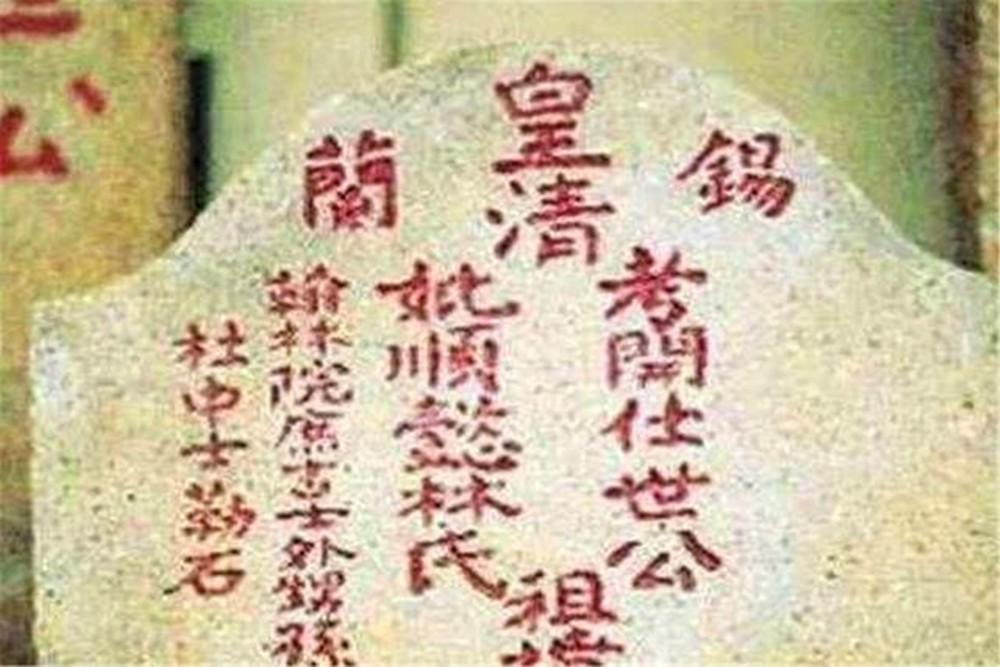 錫蘭
皇清
考開仕世公
妣順懿林氏
祖
翰林院庶吉士外甥孫
杜申士勒石
公